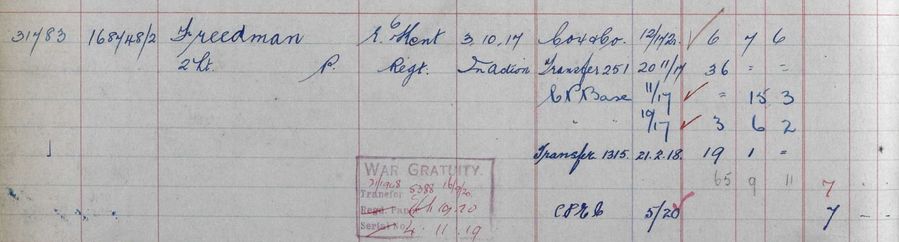 31783 168448/2 Freedman R. 6 Kent 3.10.17 Cox & Co. 12/17 6 7 6
2 Lt. P. Regt. In Action Transfer 251 20 11/17 36 " "
Base 11/17 " 15 3
" " 10/17 3 6 2
Transfer 1315. 21.2.18. 19 1 "
65 9 11
WAR GRATUITY.
7
Transfer 5388
10 20 5/20 7
Serial No 11 19